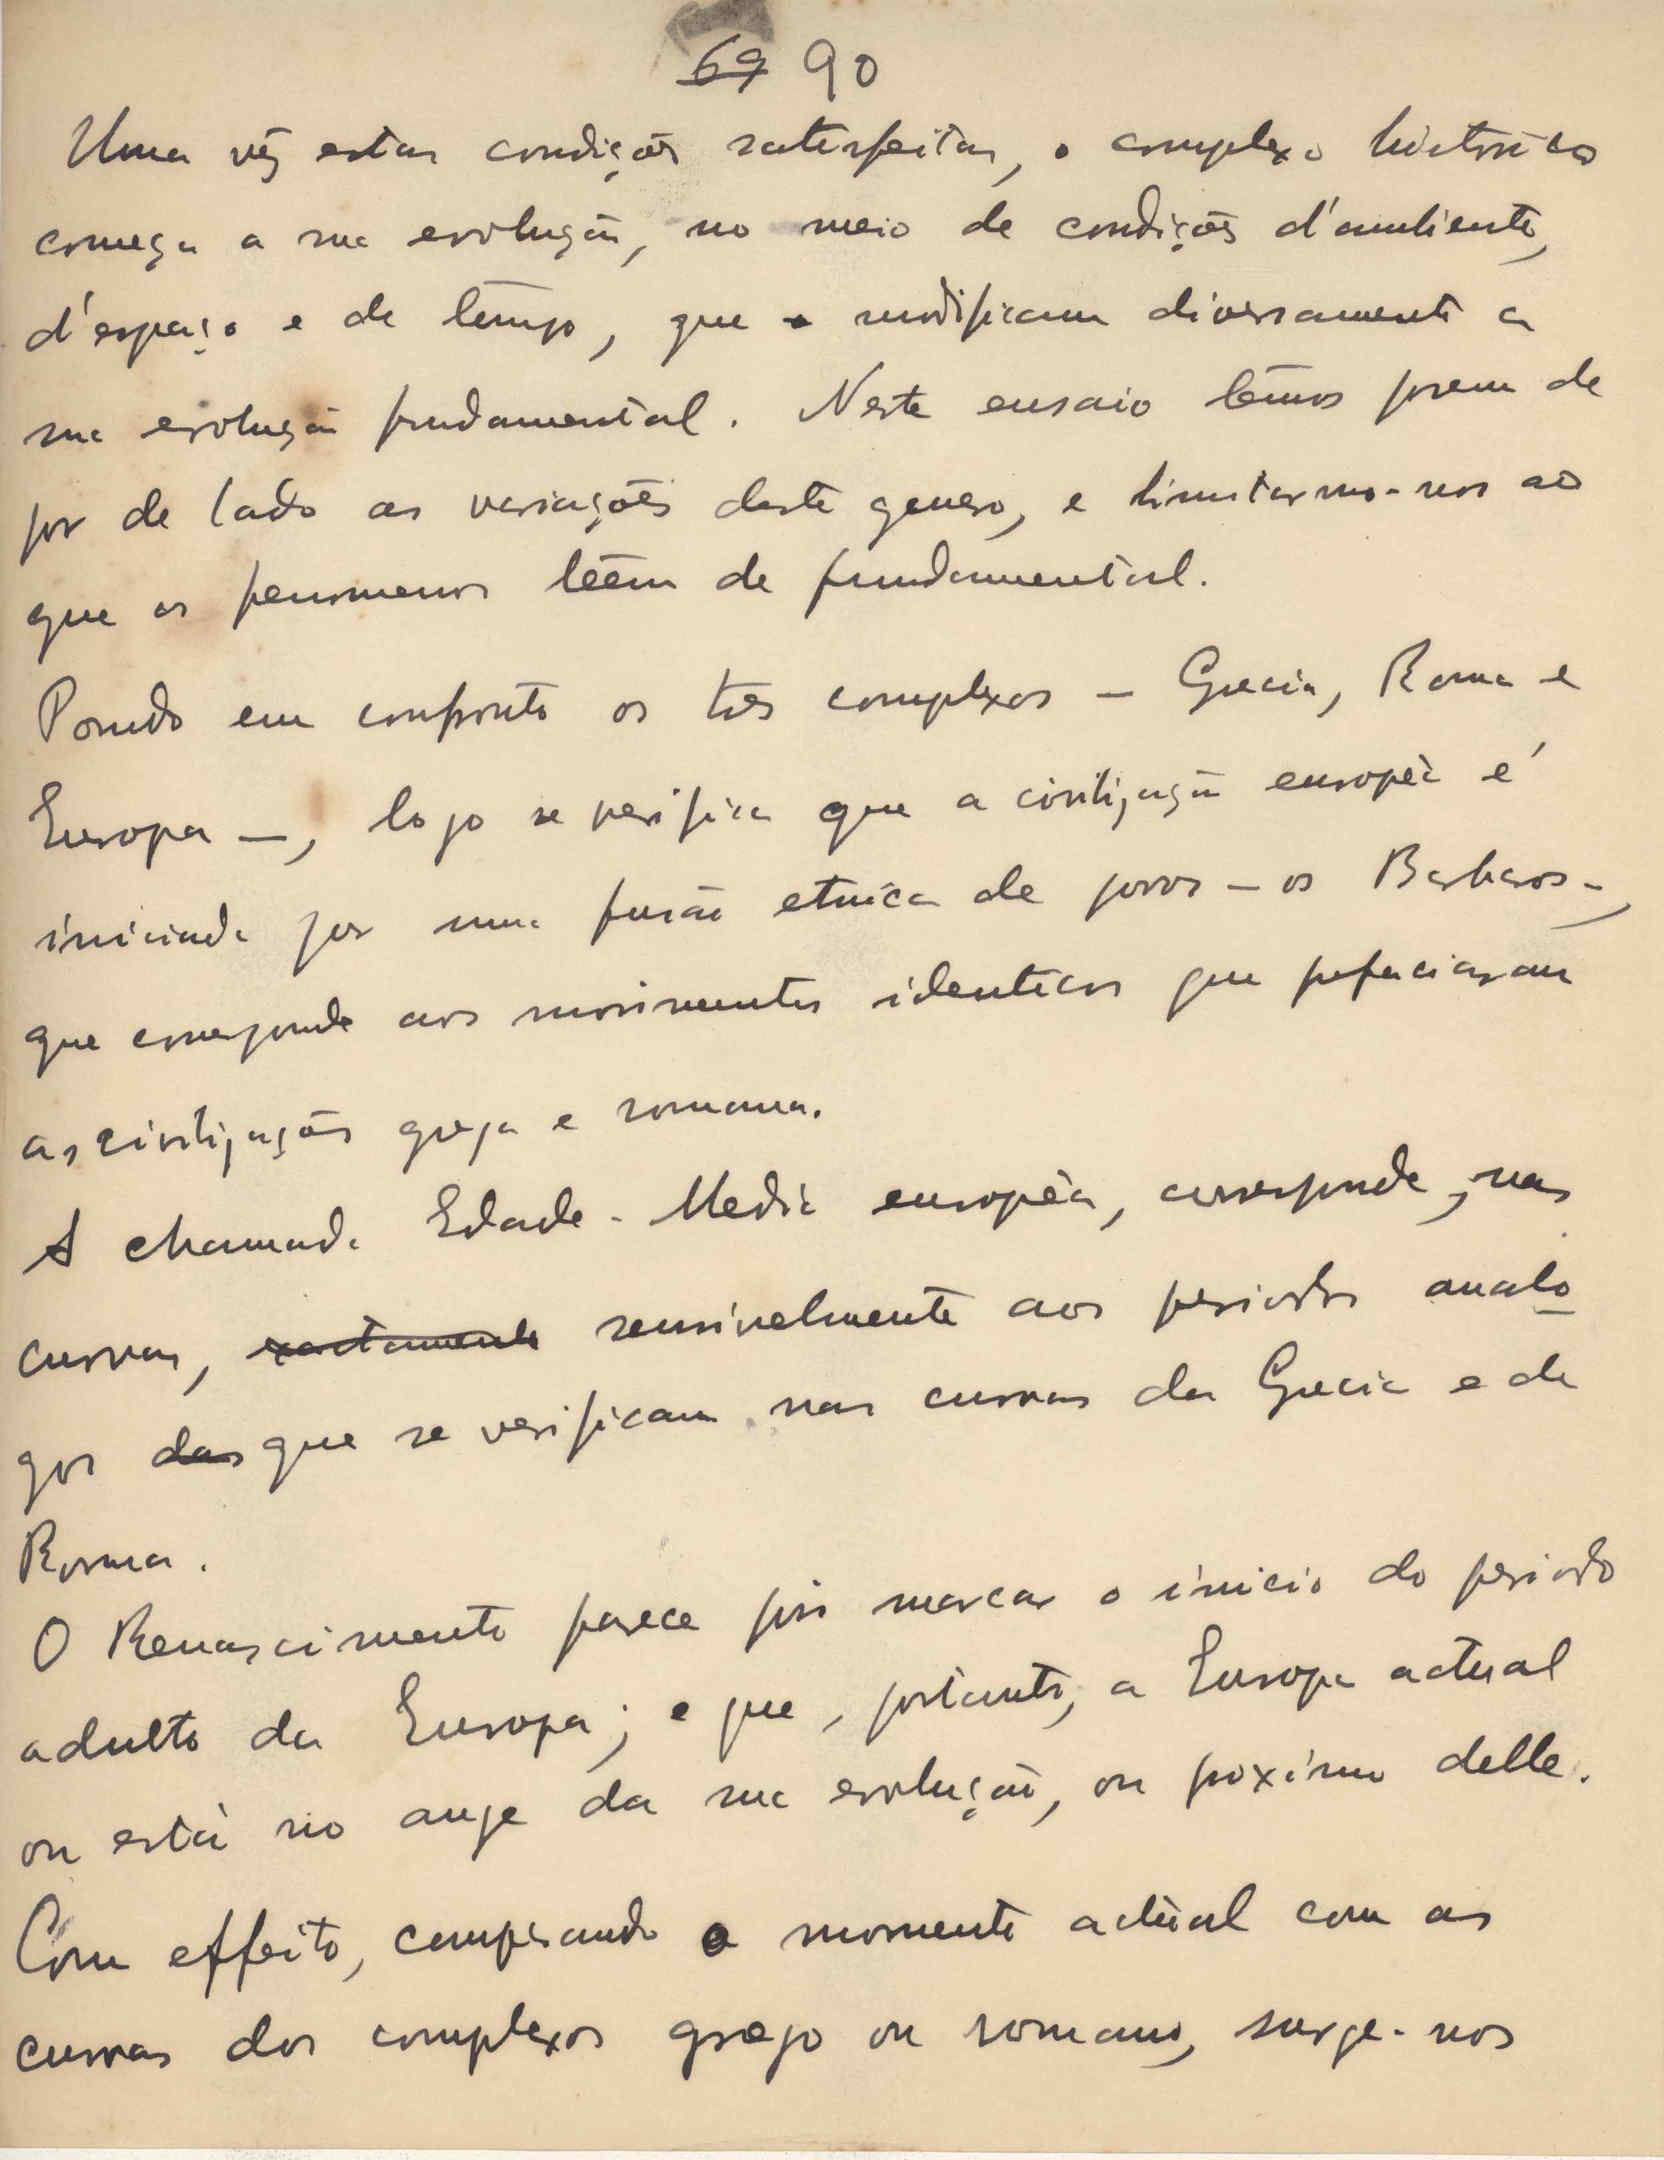 69 90
Uma vêz estas condições satisfeitas, o complexo histórico
começa a sua evolução, no meio de condições d'ambiente,
d'espaço e de tempo, que modificam diversamente a
sua evolução fundamental. Neste ensaio têmos porem de
pôr de lado as variações deste genero, e limitarmo-nos ao
que os fenomenos têem de fundamental.
Pondo em confronto os tres complexos — Grecia, Roma e
Europa —, logo se verifica que a civilização européa é
iniciada por uma fusão etnica de povos — os Barbaros —,
que corresponde aos movimentos identicos que prefaciaram
as civilizações grega e romana.
A chamada Edade-Media européa, corresponde, nas
curvas, exactamente sensivelmente aos periodos analo
gos das que se verificam nas curvas da Grecia e de
Roma.
O Renascimento parece pois marcar o inicio do periodo
adulto da Europa; e que, portanto, a Europa actual
ou está no auge da sua evolução, ou proximo delle.
Com effeito, comparando o momento actual com as
curvas dos complexos grego ou romano, surge-nos